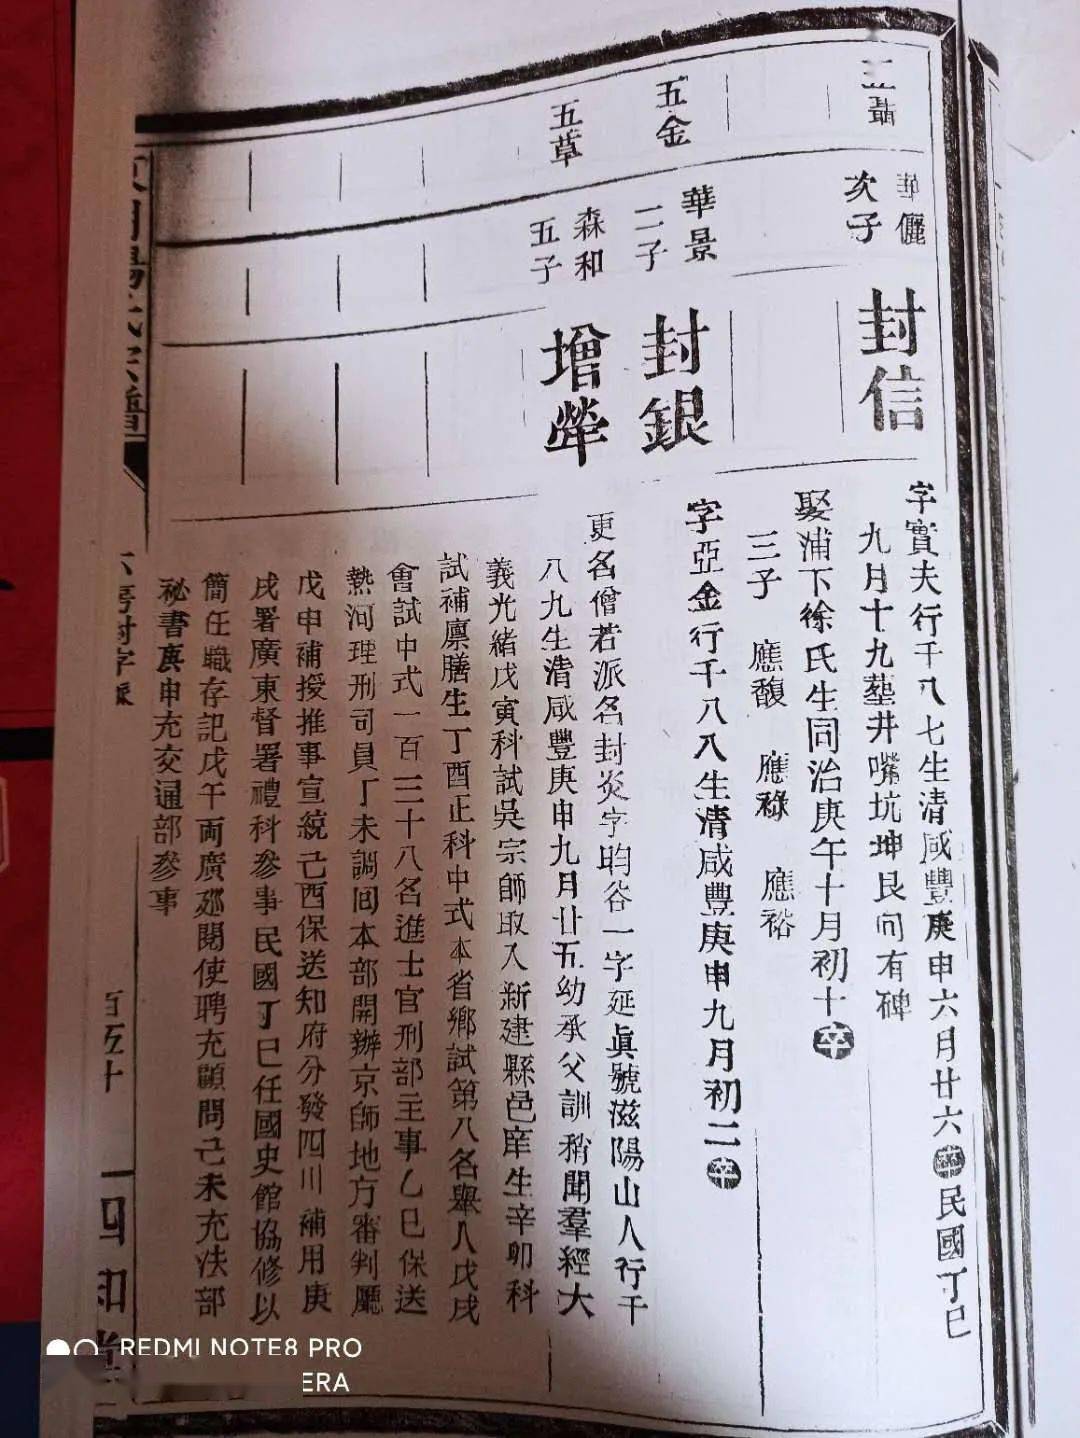 華儷
次子
封信
字實夫行千八七生清咸豐庚申六月廿六卒民國丁巳
九月十九塟井嘴坑坤艮向有碑
娶浦下徐氏生同治庚午十月初十卒
三子 應馥 應祿 應裕
五金
華景
二子
封銀
字亞金行千八八生清咸豐庚申九月初二卒
五草
森和
五子
增犖
更名僧若派名封炎字昀谷一字延眞號滋陽山人行千
八九生清咸豐庚申九月廿五幼承父訓稍聞羣經大
義光緒戊寅科試吳宗師取入新建縣邑庠生辛卯科
試補廪膳生丁酉正科中式本省鄉試第八名舉人戊戌
會試中式一百三十八名進士官刑部主事乙巳保送
熱河理刑司員丁未調回本部開辦京師地方審判廳
戊申補授推事宣統己酉保送知府分發四川補用庚
戌署廣東督署禮科參事民國丁巳任國史館協修以
簡任職存記戊午両廣廵閱使聘充顧問己未充法部
祕書庚申充交通部參事
封字派
百五十
四知堂
REDMI NOTE8 PRO
ERA